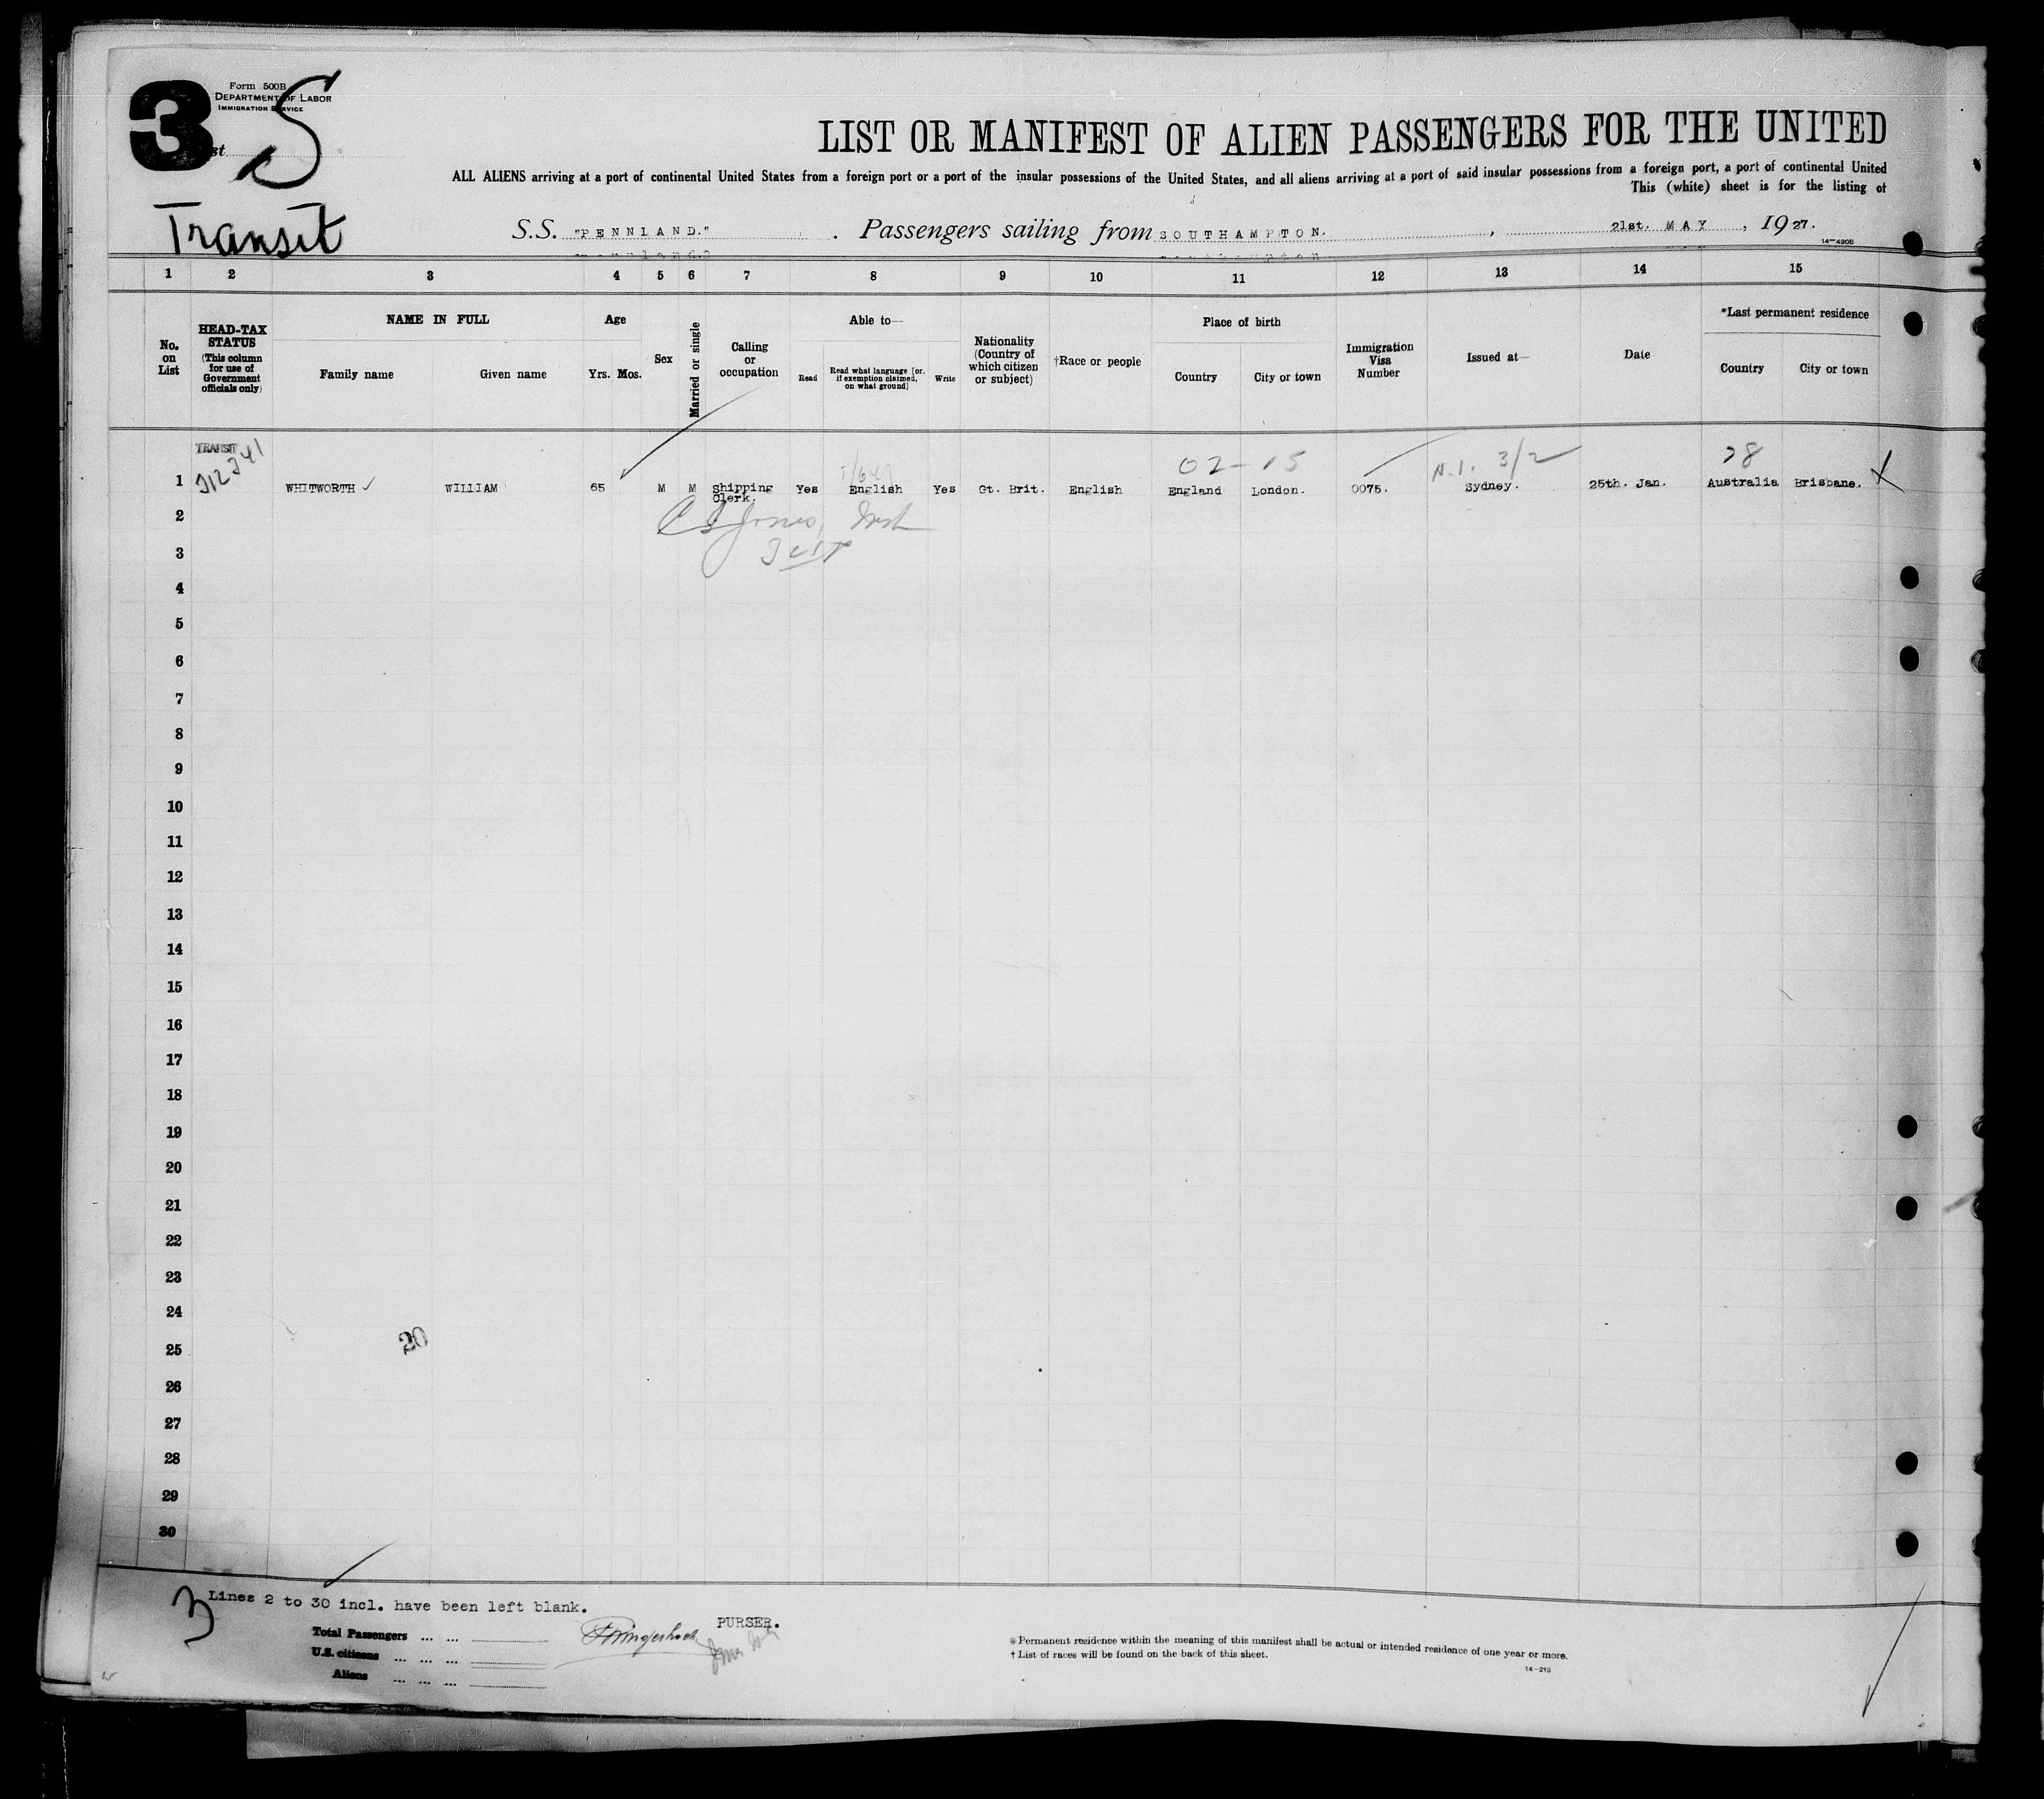 3
Form 500B
DEPARTMENT OF LABOR
IMMIGRATION SERVICE
S
st
LIST OR MANIFEST OF ALIEN PASSENGERS FOR THE UNITED
ALL ALIENS arriving at a port of continental United States from a foreign port or a port of the insular possessions of the United States, and all aliens arriving at a port of said insular possessions from a foreign port, a port of continental United
This (white) sheet is for the listing of
Transit
S.S. "PENNLAND." Passengers sailing from SOUTHAMPTON. , 21st. MAY , 1927.
14-430B
1 2 3 4 5 6 7 8 9 10 11 12 13 14 15
No. on List
HEAD-TAX STATUS
(This column for use of Government officials only)
NAME IN FULL
Family name Given name
Age
Yrs. Mos.
Sex
Married or single
Calling or occupation
Able to—
Read
Read what language [or, if exemption claimed, on what ground]
Write
Nationality (Country of which citizen or subject)
†Race or people
Place of birth
Country City or town
Immigration Visa Number
Issued at—
Date
*Last permanent residence
Country City or town
TRANSIT
02-15 N.I. 3/2 28
1 WHITWORTH ✓ WILLIAM 65 M M Shipping Clerk. Yes English Yes Gt. Brit. English England London. 0075. Sydney. 25th. Jan. Australia Brisbane. X
2
3
4
5
6
7
8
9
10
11
12
13
14
15
16
17
18
19
20
21
22
23
24
20
25
26
27
28
29
30
3
Lines 2 to 30 incl. have been left blank.
PURSER.
Total Passengers ... ...
U.S. citizens ... ... ...
Aliens ... ... ...
* Permanent residence within the meaning of this manifest shall be actual or intended residence of one year or more.
† List of races will be found on the back of this sheet.
14-213